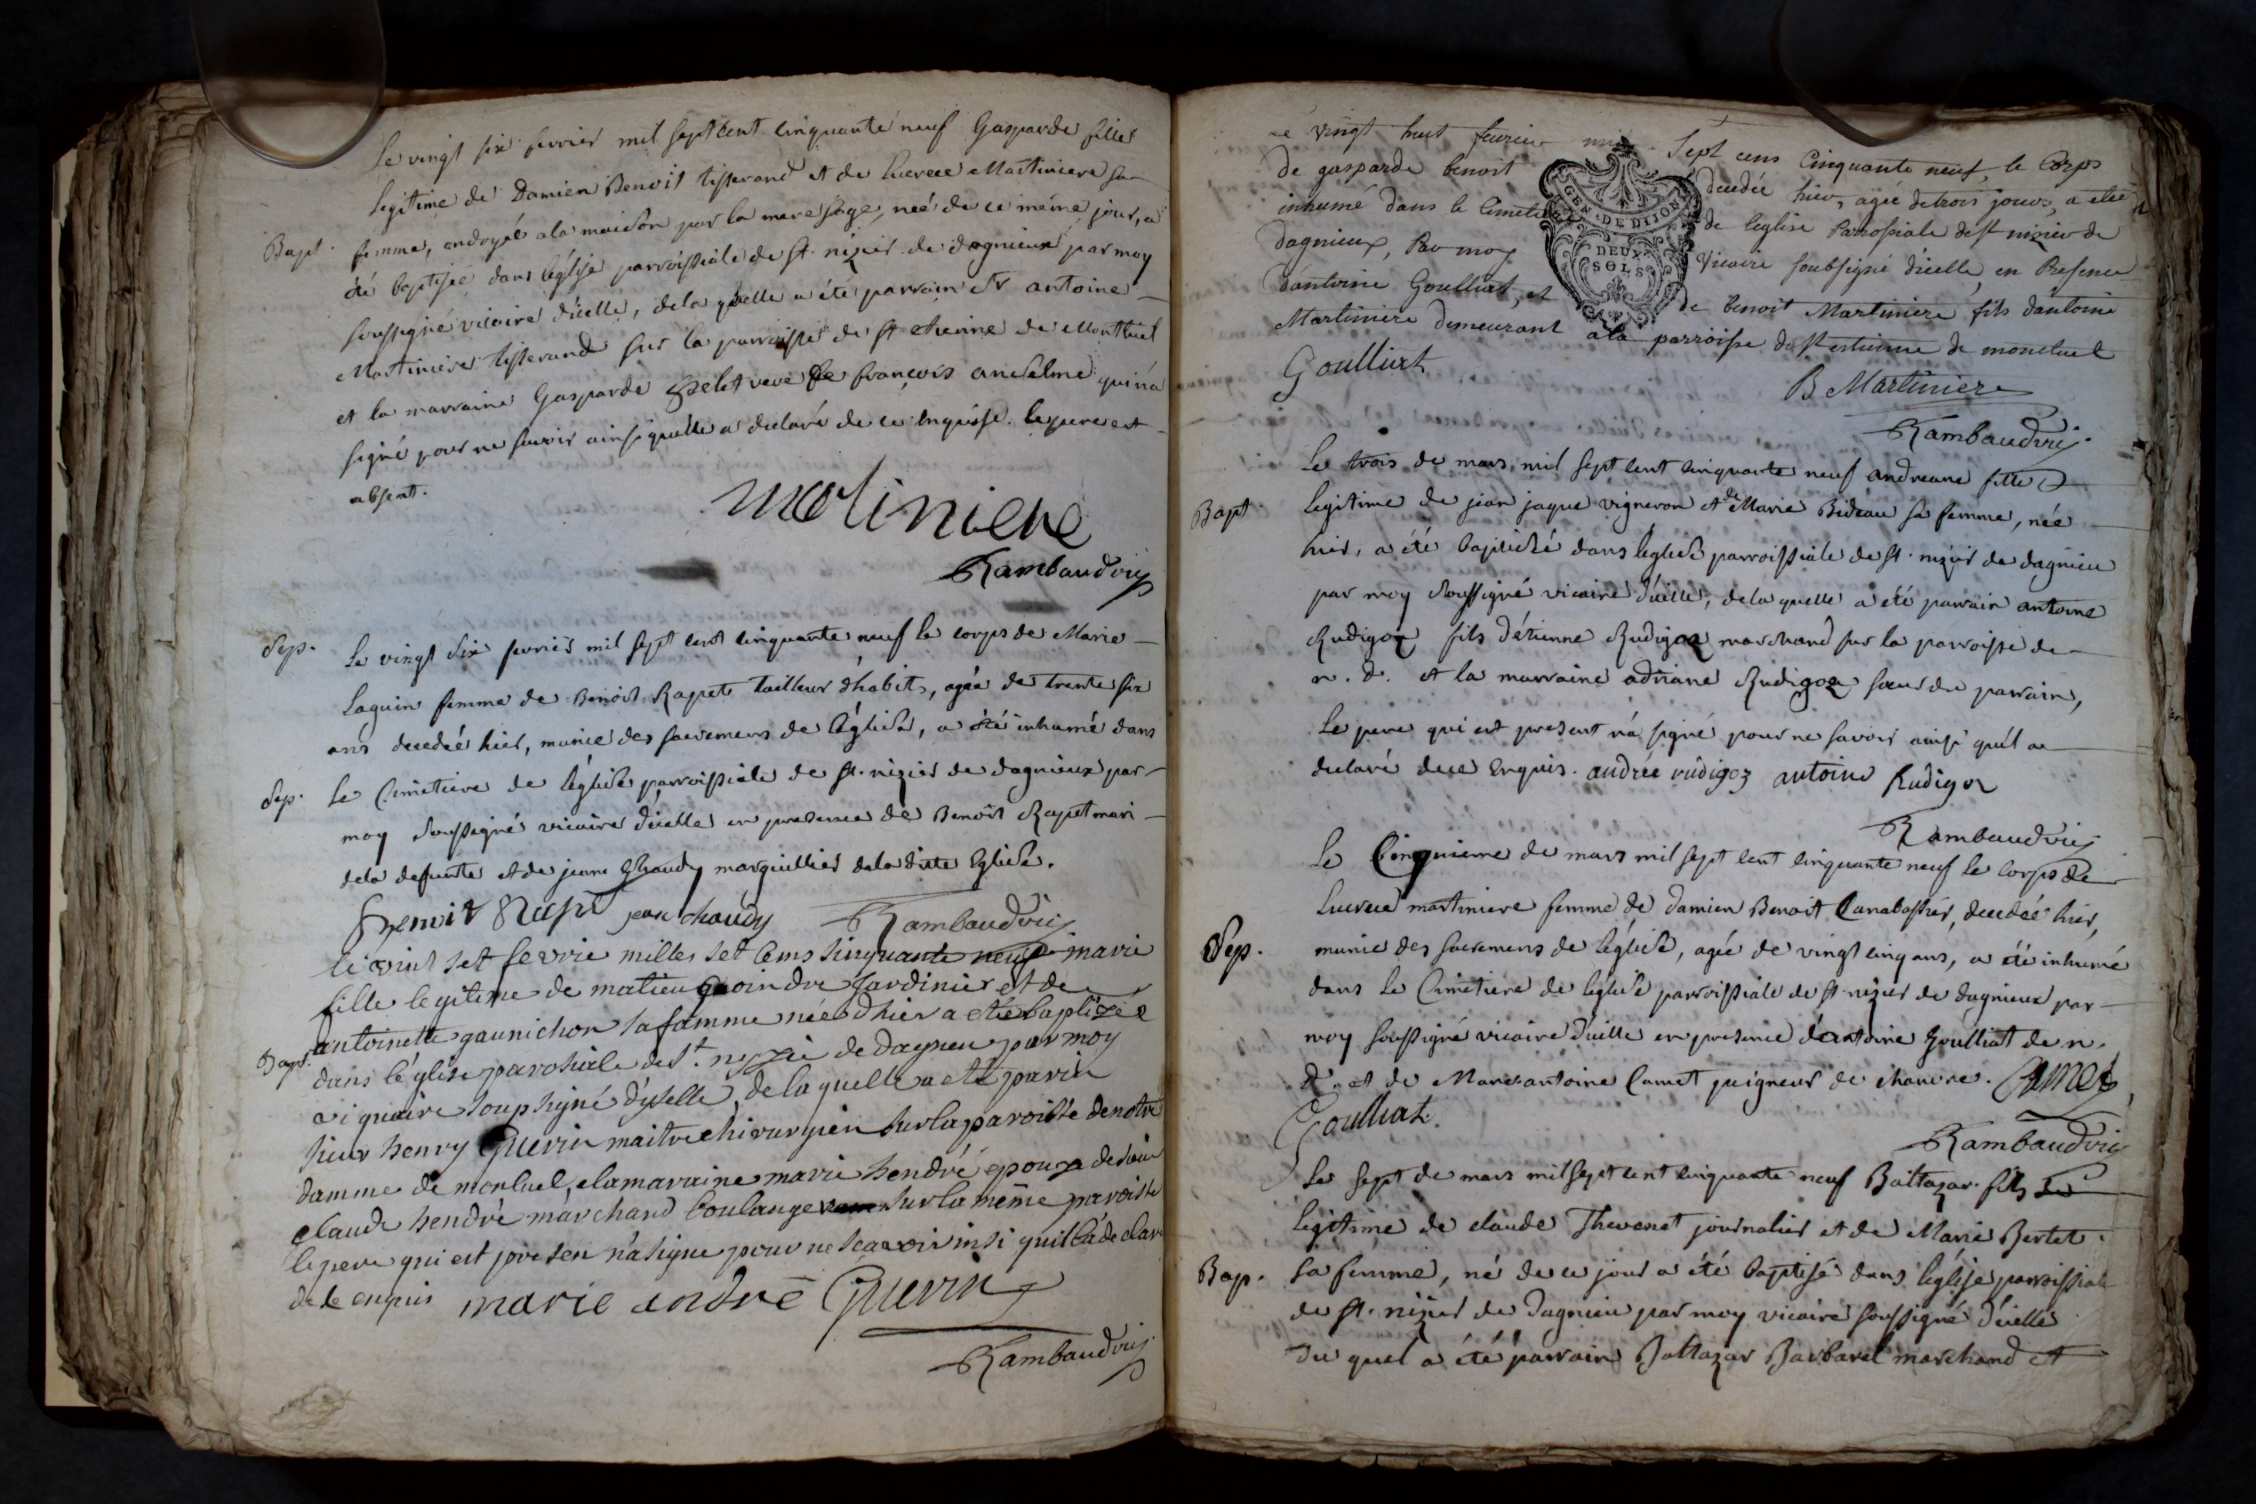 le vingt six fevrier mil sept cent cinquante neuf Gasparde fille
legitime de Damien Benoit tisserand et de Lucrece Martiniere sa
Bapt. femme, ondoyée a la maison par la mere sage, neé de ce même jour, a
été baptisée dans l'église parroissiale de st. nizier de dagnieux par moy
soussigné vicaire d'icelle, de la quelle a été parrain Sr antoine
Martiniere tisserand sur la parroisse de st etienne de Montluel
et la marraine Gasparde veuve de françois anselme qui n'a
signé pour ne savoir ainsi qu'elle a declaré de ce enquise. le pere est
absent.
motiniere
Rambaud vic
Sep. Le vingt six fevrier mil sept cent cinquante neuf le corps de Marie
Laguin femme de Benoit Rapet tailleur d'habits, agée de trente six
ans decedeé hier, munie des sacremens de l'église, a été inhumé dans
Sep. le Cimetiere de l'église parroissiale de st. nizier de dagnieux par
moy soussigné vicaire d'icelle en presence de Benoit Rapet mari
de la defunte et de jean Chaudy marguillier de la dite Eglise.
Benoit Rapt jean chaudy Rambaud vic
le vint set fevrie milles set cens sinquante neuf marie
fille legiteme de matieu Goindre Jardinier et de
antoinette gaunichon sa famme née d'hier a eté baptizée
Bapt. dans l'église parosiale de St. nyzie de Dagneu par moy
viquaire soupsigné d'yselle, de la quelle a eté parin
sieur henry Guerin maitre chirurgien sur la paroisse de notre
damme de monluel, e la maraine marie hendré epouze de sieur
claude hendré marchand boulanger sur la même paroisse
le pere qui est presen n'a signe pour ne scavoir insi quil la declaré
de le enquis marie endré Guerin
Rambaud vic
Le vingt huit fevrier mil Sept cens Cinquante neuf, le Corps
de gasparde benoit decedée hier, agée de trois jours, a etté
inhumé dans le Cimetiere de l'eglise Paroissiale de st nizier de
dagnieux, Par moy Vicaire soubsigné d'icelle, en Presence
d'antoine Goulliat, et de benoit Martiniere fils d'antoine
Martiniere demeurant a la parroisse de st estienne de monluel
Goulliat
B Martiniere
Rambaud vic
GEN. DE DIJON
DEUX
SOLS
Le trois de mars mil sept cent cinquante neuf andreane fille
Bapt. legitime de jean jaque vigneron et de Marie Bideau sa femme, née
hier, a été baptisée dans l'eglise parroissiale de st. nizier de dagnieu
par moy soussigné vicaire d'icelle, de la quelle a été parrain antoine
Rudigoz fils d'étienne Rudigoz marchand sur la parroisse de
n. d. et la marraine adriane Rudigoz soeur du parrain,
le pere qui est present n'a signé pour ne savoir ainsi qu'il a
declaré de ce enquis. andrée rudigoz antoine Rudigoz
Rambaud vic
Le Cinquieme de mars mil sept cent cinquante neuf le corps de
Lucrece martiniere femme de Damien Benoit Canabassier, decedée hier,
Sep. munie des sacremens de l'église, agée de vingt cinq ans, a été inhumé
dans le Cimetiere de l'église parroissiale de st nizier de dagnieux par
moy soussigné vicaire d'icelle en presence d'antoine Goulliat de n.
d. et de Marc antoine Camet peigneur de chanvre. Camet
Goulliat.
Rambaud vic
Le sept de mars mil sept cent cinquante neuf Baltazar fils
legitime de claude Thevenet journalier et de Marie Bertet
Bap. sa femme, né de ce jour a été baptisé dans l'église parroissiale
de st. nizier de Dagnieu par moy vicaire soussigné d'icelle
du quel a été parrain Baltazar Barbaret marchand et